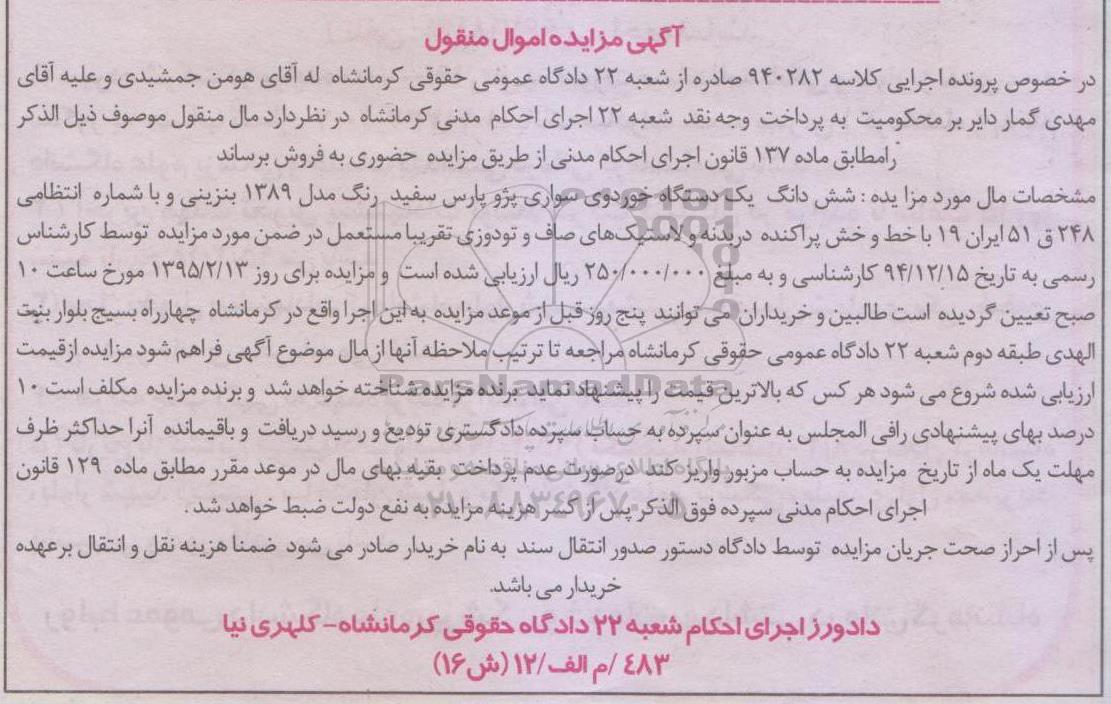 آگهی مزایده اموال منقول
در خصوص پرونده اجرایی کلاسه ۹۴۰۲۸۲ صادره از شعبه ۲۲ دادگاه عمومی حقوقی کرمانشاه له آقای هومن جمشیدی و علیه آقای
مهدی گمار دایر بر محکومیت به پرداخت وجه نقد شعبه ۲۲ اجرای احکام مدنی کرمانشاه در نظردارد مال منقول موصوف ذیل الذکر
رامطابق ماده ۱۳۷ قانون اجرای احکام مدنی از طریق مزایده حضوری به فروش برساند
مشخصات مال مورد مزا یده : شش دانگ یک دستگاه خوردوی سواری پژو پارس سفید رنگ مدل ۱۳۸۹ بنزینی و با شماره انتظامی
۲۴۸ ق ۵۱ ایران ۱۹ با خط و خش پراکنده دربدنه و لاستیک‌های صاف و تودوزی تقریبا مستعمل در ضمن مورد مزایده توسط کارشناس
رسمی به تاریخ ۹۴/۱۲/۱۵ کارشناسی و به مبلغ ۲۵۰/۰۰۰/۰۰۰ ریال ارزیابی شده است و مزایده برای روز ۱۳۹۵/۲/۱۳ مورخ ساعت ۱۰
صبح تعیین گردیده است طالبین و خریداران می توانند پنج روز قبل از موعد مزایده به این اجرا واقع در کرمانشاه چهارراه بسیج بلوار بنت
الهدی طبقه دوم شعبه ۲۲ دادگاه عمومی حقوقی کرمانشاه مراجعه تا ترتیب ملاحظه آنها از مال موضوع آگهی فراهم شود مزایده ازقیمت
ارزیابی شده شروع می شود هر کس که بالاترین قیمت را پیشنهاد نماید برنده مزایده شناخته خواهد شد و برنده مزایده مکلف است ۱۰
درصد بهای پیشنهادی رافی المجلس به عنوان سپرده به حساب سپرده دادگستری تودیع و رسید دریافت و باقیمانده آنرا حداکثر ظرف
مهلت یک ماه از تاریخ مزایده به حساب مزبور واریز کند درصورت عدم پرداخت بقیه بهای مال در موعد مقرر مطابق ماده ۱۲۹ قانون
اجرای احکام مدنی سپرده فوق الذکر پس از کسر هزینه مزایده به نفع دولت ضبط خواهد شد .
پس از احراز صحت جریان مزایده توسط دادگاه دستور صدور انتقال سند به نام خریدار صادر می شود ضمنا هزینه نقل و انتقال برعهده
خریدار می باشد.
دادورز اجرای احکام شعبه ۲۲ دادگاه حقوقی کرمانشاه- کلهری نیا
۴۸۳ /م الف/۱۲ (ش۱۶)
ParsNamadData